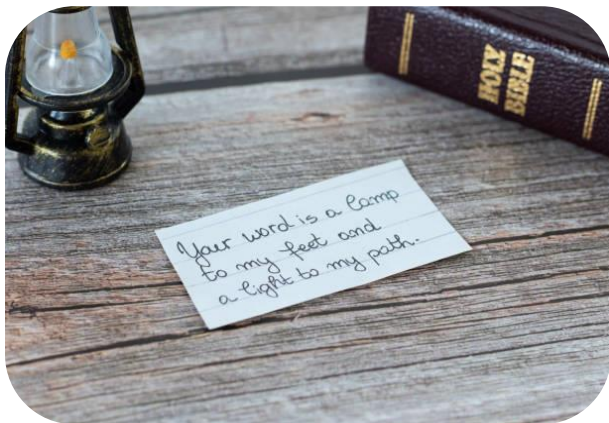 HOLY
BIBLE
Your word is a lamp
to my feet and
a light to my path.